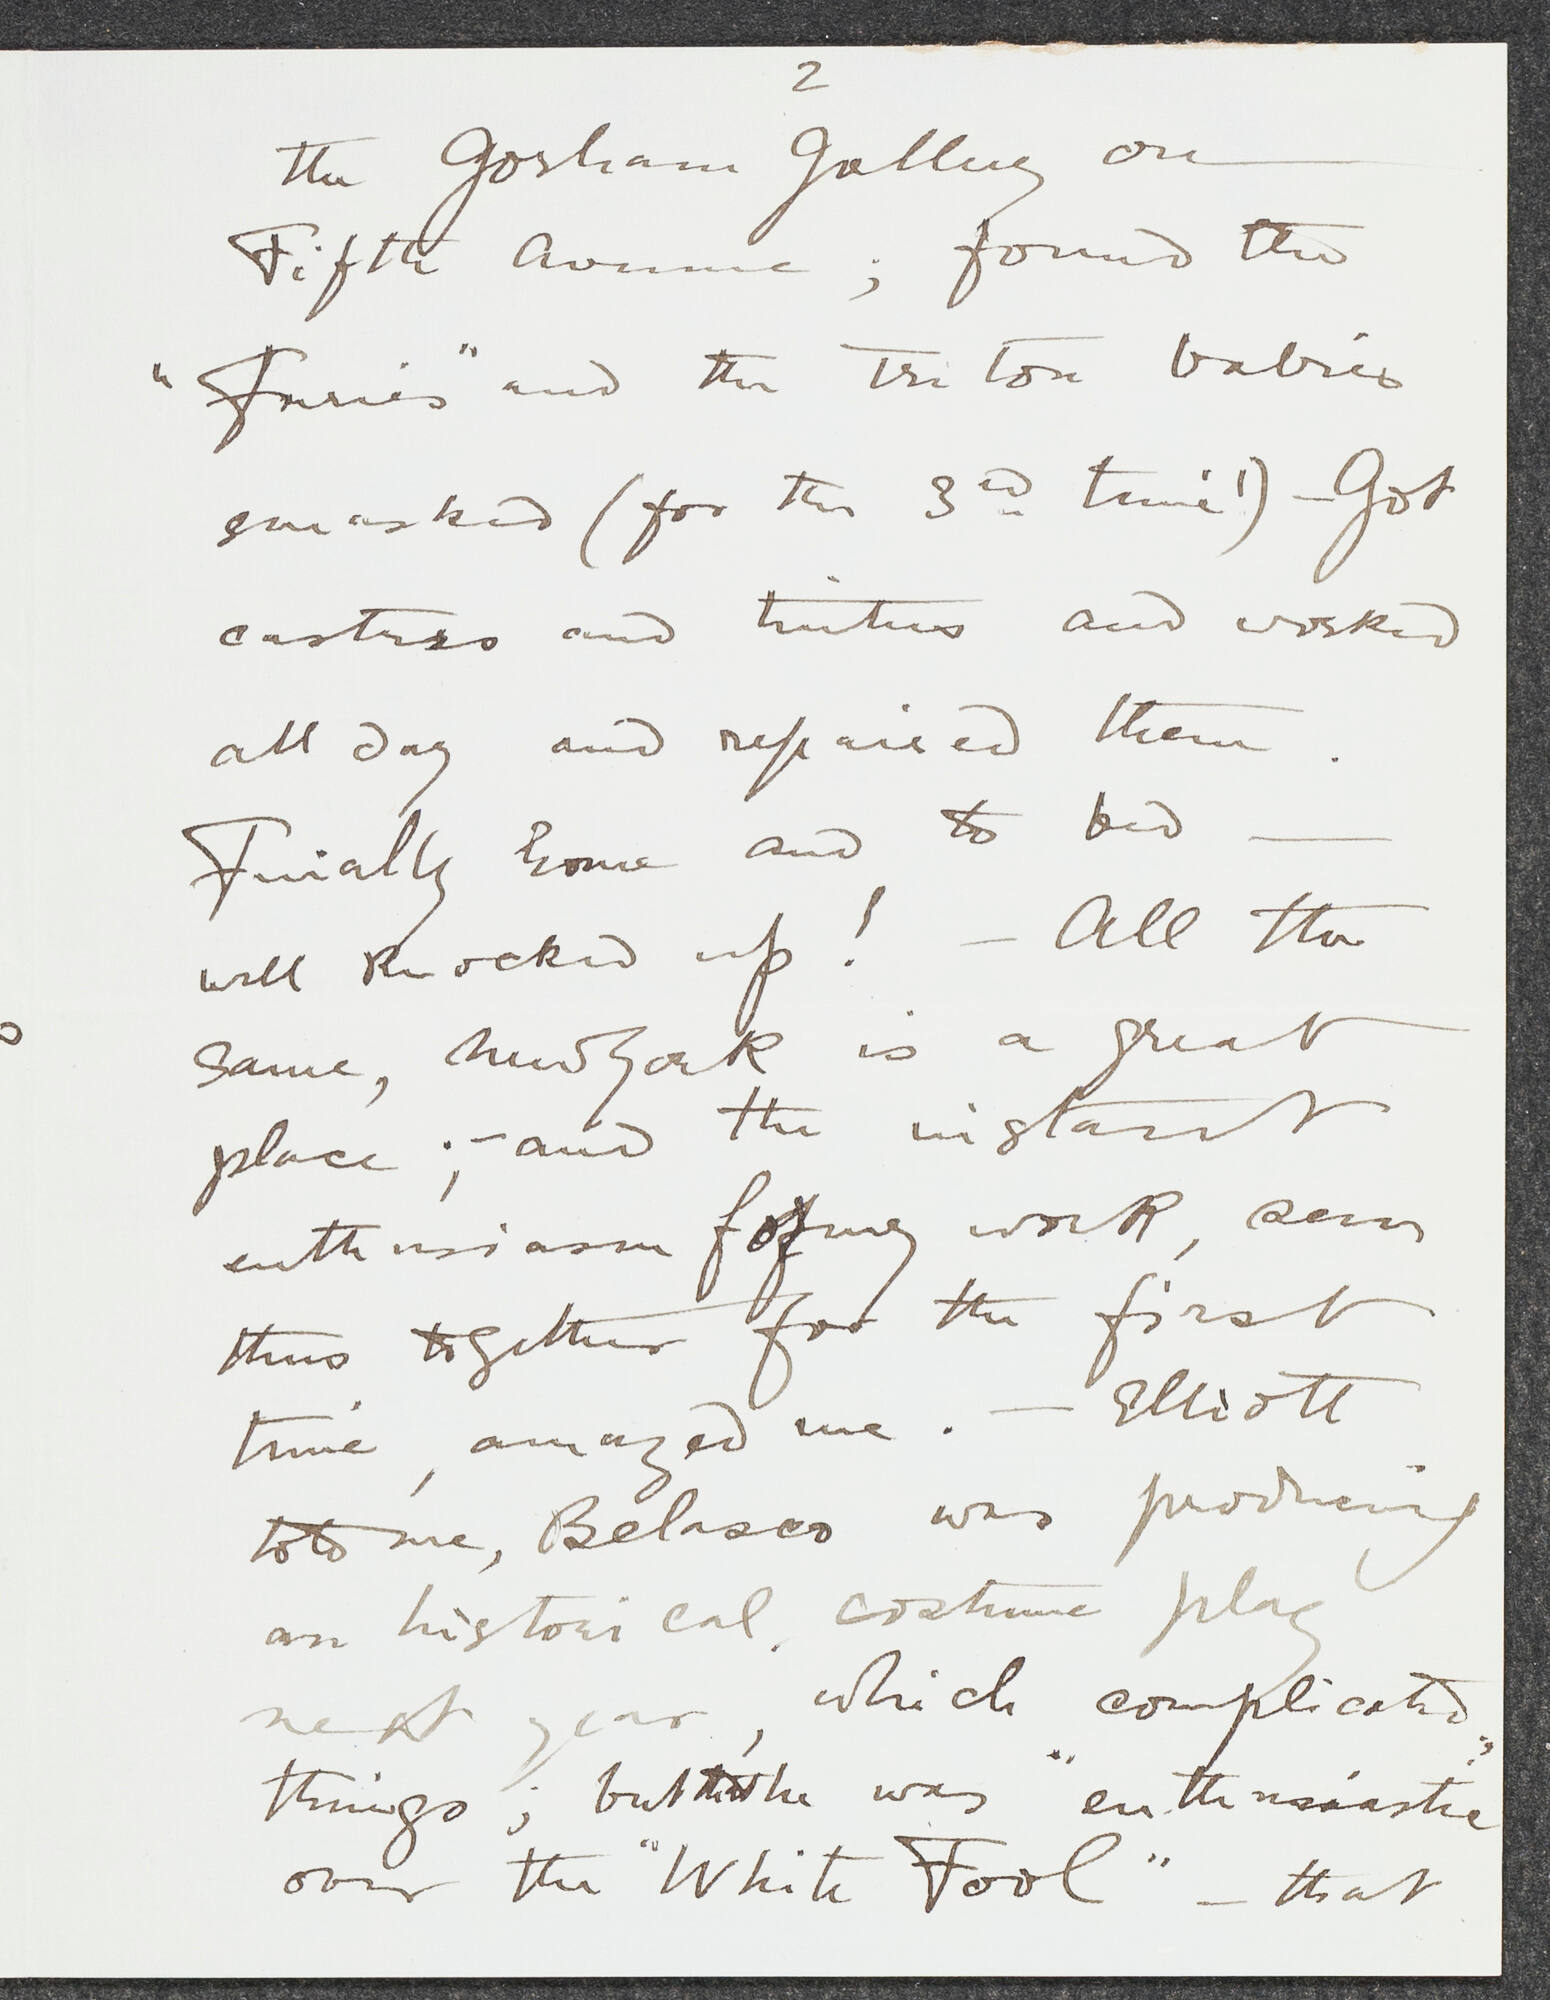 2
the Gorham Gallery on
Fifth Avenue ; found the
"Furies" and the Triton babies
smashed (for the 3rd time!) - Got
casters and tinters and worked
all day and repaired them .
Finally home and to bed —
well knocked up ! - All the
same, New York is a great
place ; - and the instant
enthusiasm for my work, seen
thus together for the first
time, amazed me . - Elliott
told me, Belasco was producing
an historical, costume play
next year, which complicated
things ; but he was "enthusiastic"
over the "White Fool" - that